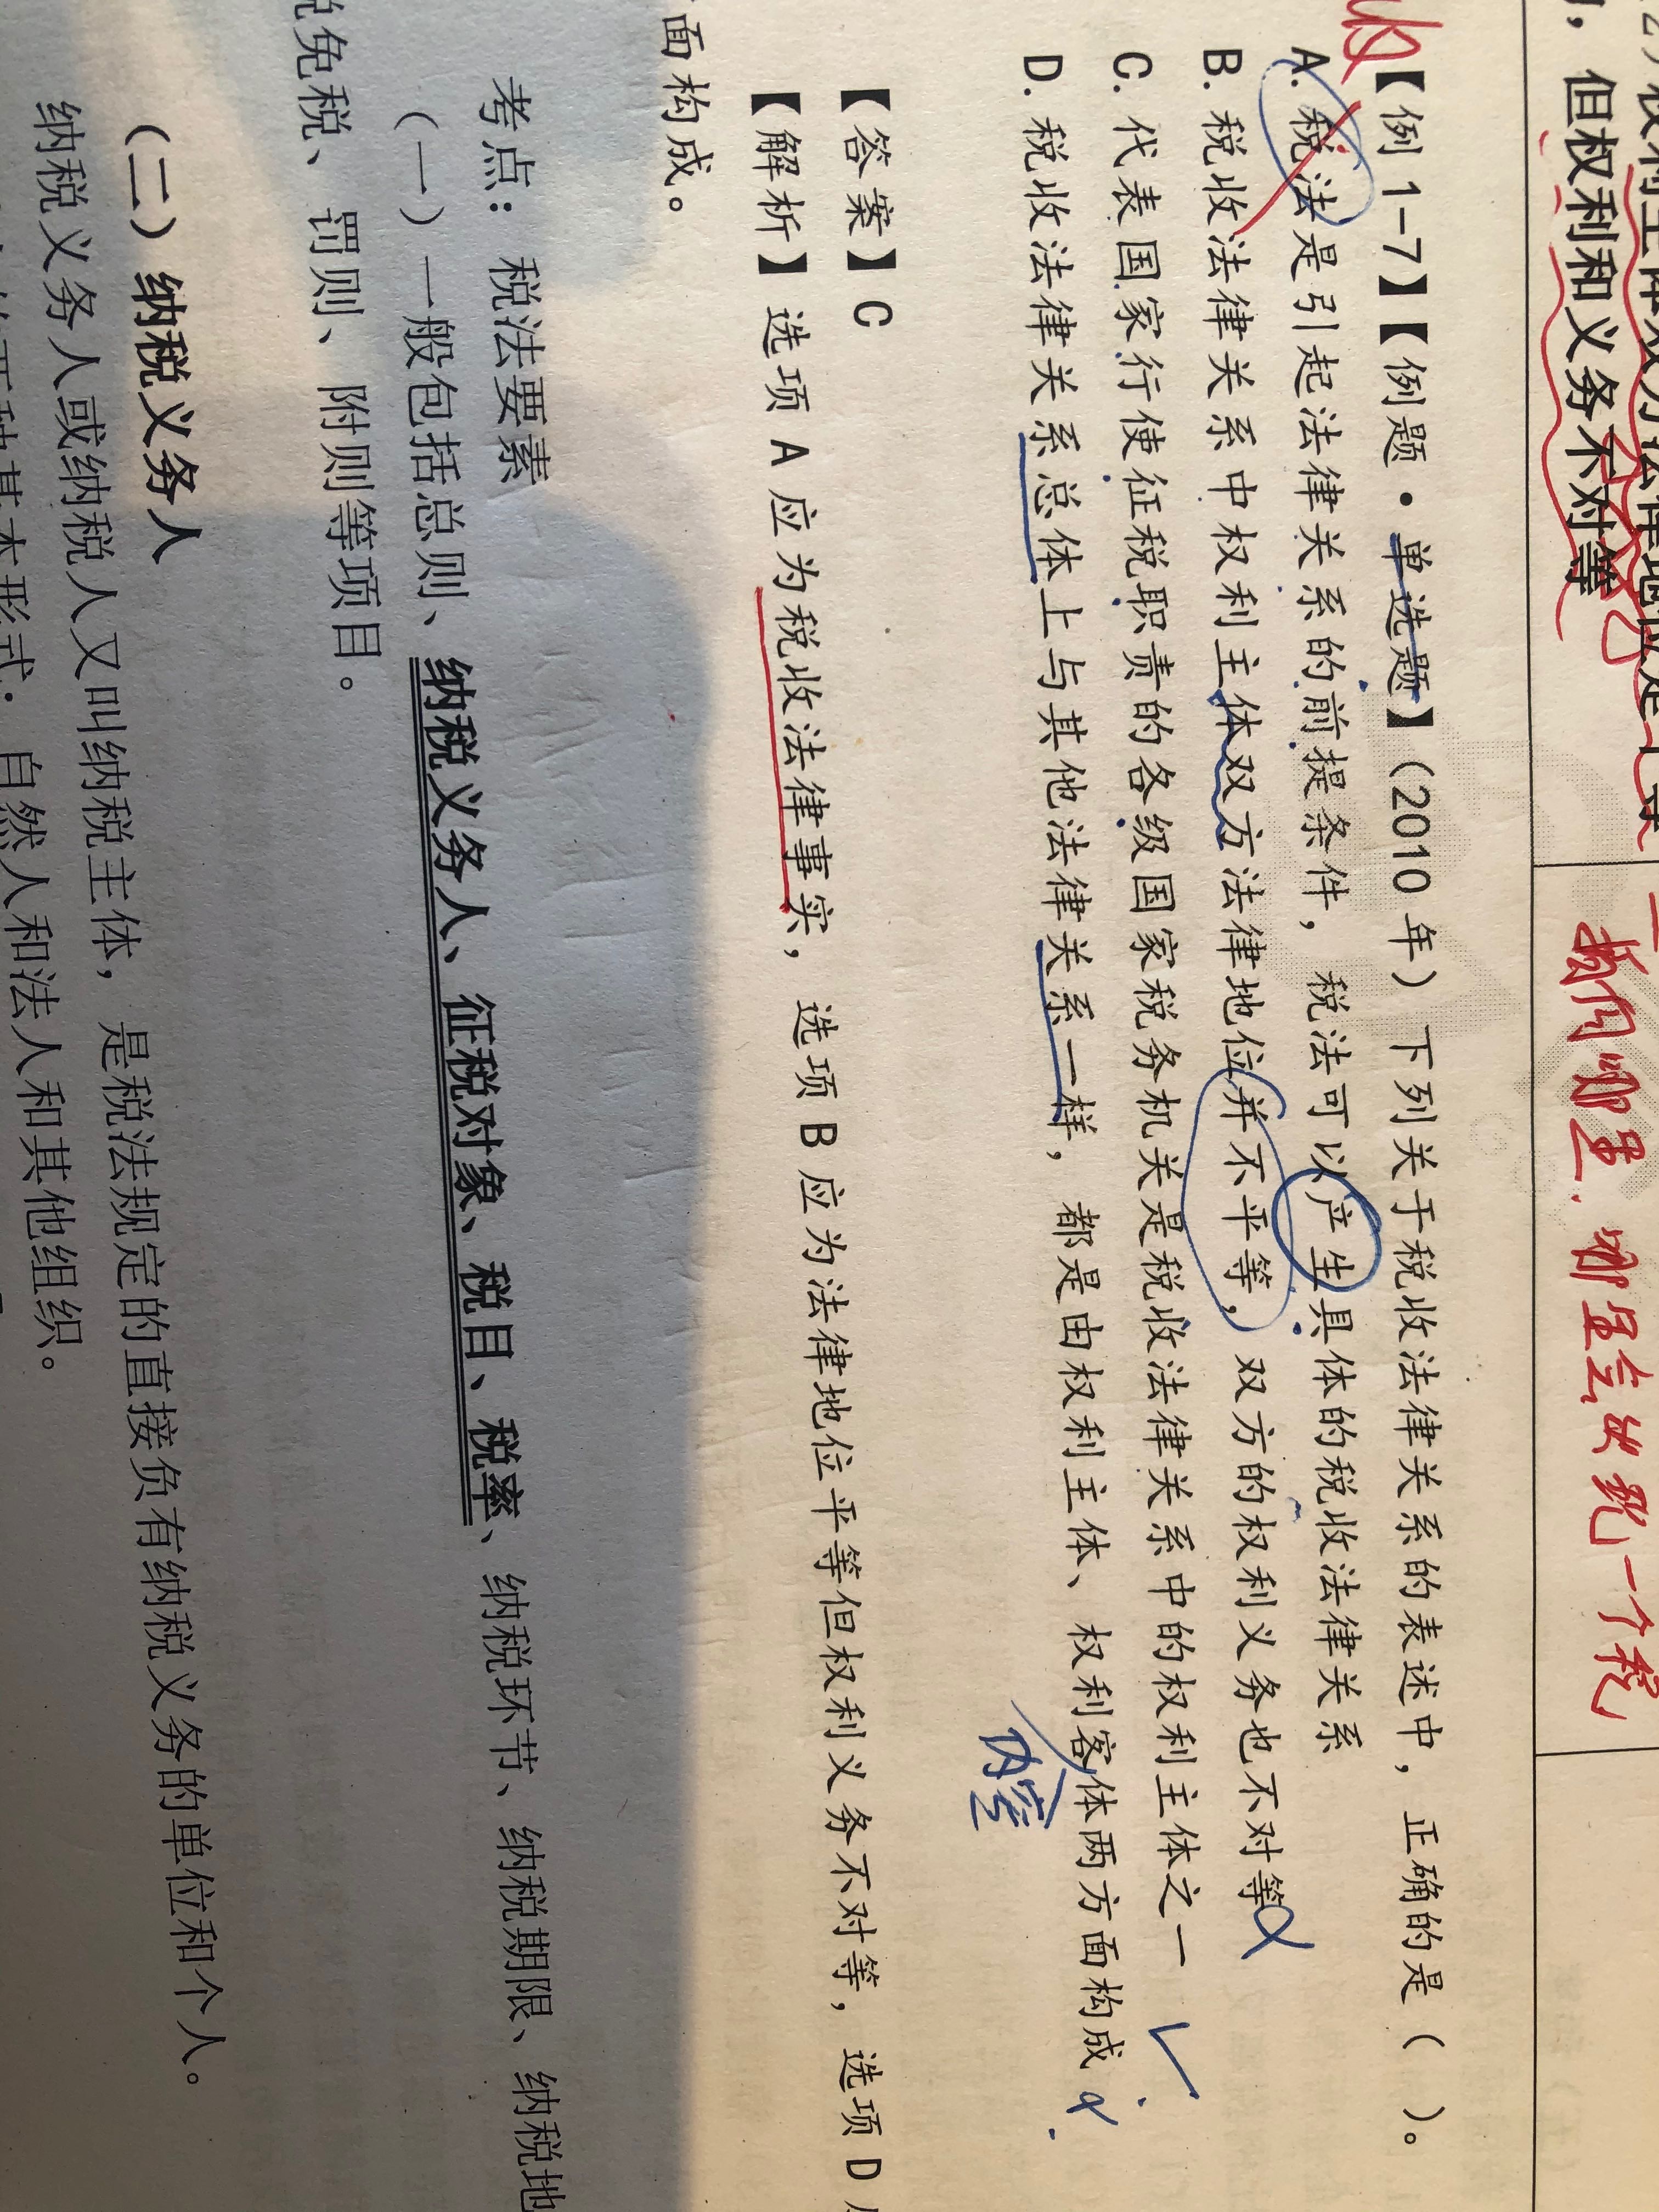 但权利和义务不对等
哪里会收税一个税
【例 1-7】【例题·单选题】(2010 年)下列关于税收法律关系的表述中，正确的是(  )。
A.税法是引起法律关系的前提条件，税法可以产生具体的税收法律关系
B.税收法律关系中权利主体双方法律地位并不平等，双方的权利义务也不对等
C.代表国家行使征税职责的各级国家税务机关是税收法律关系中的权利主体之一
D.税收法律关系总体上与其他法律关系一样，都是由权利主体、权利客体两方面构成
内容
【答案】C
【解析】选项 A 应为税收法律事实，选项 B 应为法律地位平等但权利义务不对等，选项 D
面构成。
考点：税法要素
(一)一般包括总则、纳税义务人、征税对象、税目、税率、纳税环节、纳税期限、纳税地
免税、罚则、附则等项目。
(二)纳税义务人
纳税义务人或纳税人又叫纳税主体，是税法规定的直接负有纳税义务的单位和个人。
两种基本形式：自然人和法人和其他组织。